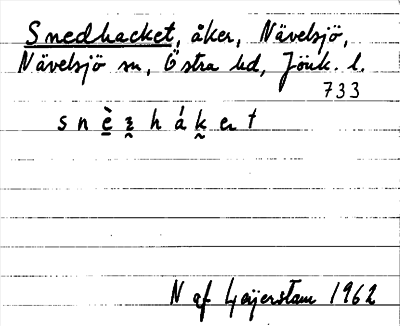 Snedhacket, åker, Nävelsjö,
Nävelsjö sn, Östra hd, Jönk. l.
733
s n è̲ z̰ h á k̰ e t
N af Geijerstam 1962